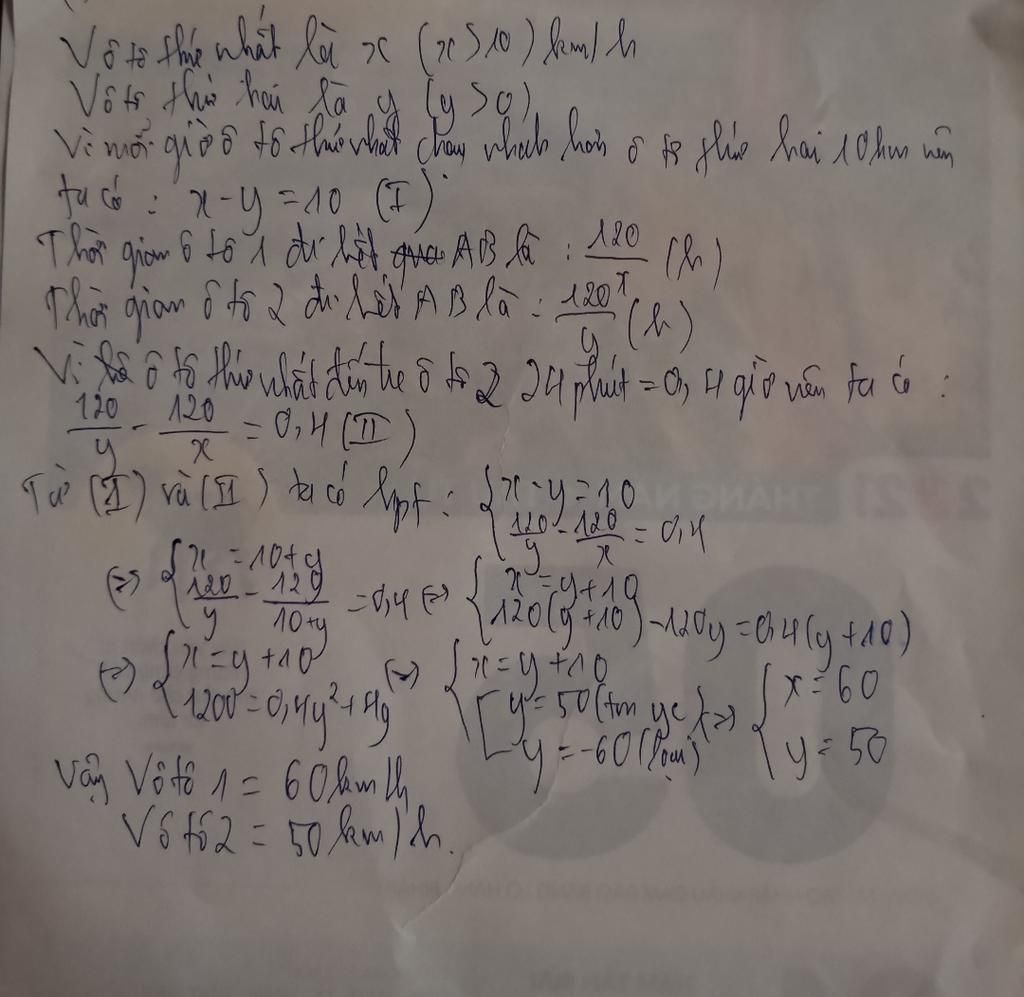 V ô tô thứ nhất là x (x > 10) km/h
V ô tô thứ hai là y (y > 0)
Vì mỗi giờ ô tô thứ nhất chạy nhanh hơn ô tô thứ hai 10km nên
ta có : x - y = 10 (I)
Thời gian ô tô 1 đi hết AB là : 120/x (h)
Thời gian ô tô 2 đi hết AB là : 120/y (h)
Vì ô tô thứ nhất đến trc ô tô 2 24 phút = 0,4 giờ nên ta có :
120/y - 120/x = 0,4 (II)
Từ (I) và (II) ta có hpt : { x - y = 10
120/y - 120/x = 0,4
(=> { x = 10 + y
120/y - 120/(10+y) = 0,4 (=> { x = y + 10
120(y + 10) - 120y = 0,4(y + 10)
(=> { x = y + 10
1200 = 0,4y² + 4y (=> { x = y + 10
[ y = 50 (tm
y = -60 (loại) => { x = 60
y = 50
Vậy V ô tô 1 = 60 km/h
V ô tô 2 = 50 km/h.
THÁNG NĂM
05